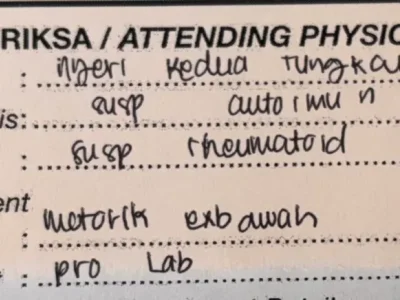 RIKSA / ATTENDING PHYSIC
: nyeri kedua tungkai
is: susp autoimun
: susp rheumatoid
ent
: motorik exbawah
: pro lab